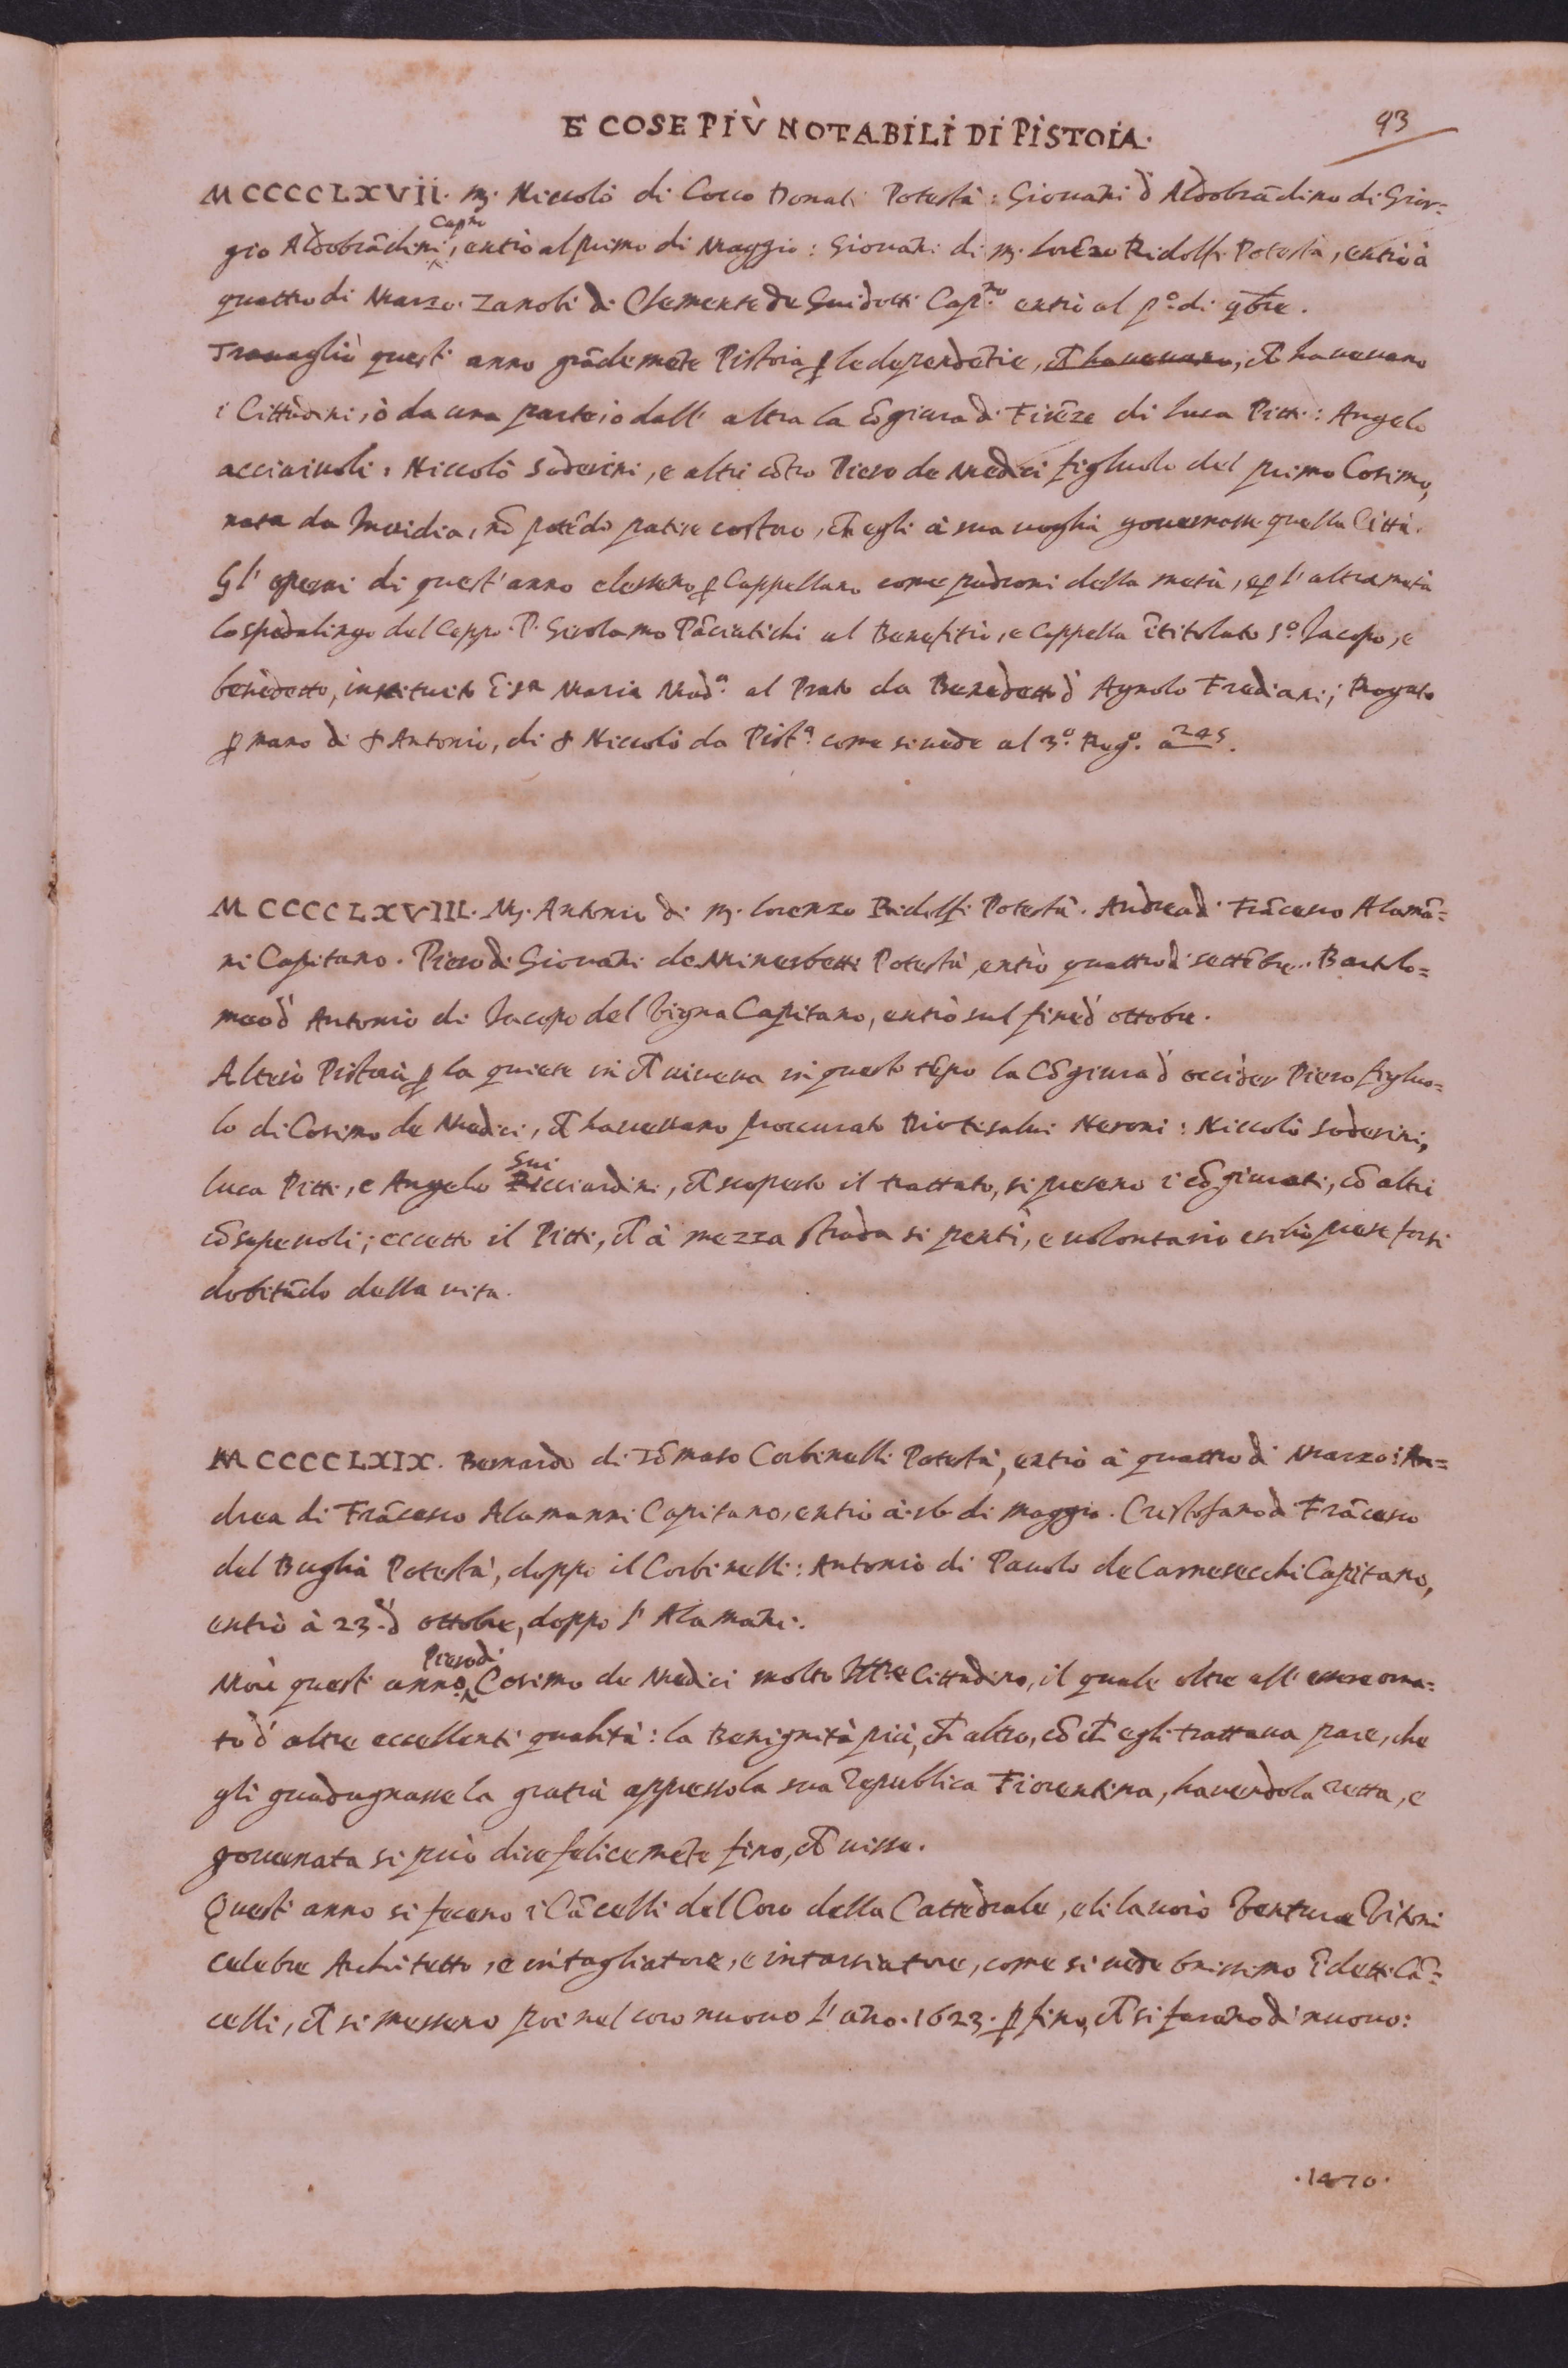 E COSE PIÙ NOTABILI DI PISTOIA.
93
MCCCCLXVII. m. Niccolò di Cocco Donati Potestà: Giouāni d' Aldobrādino di Gior=
gio Aldobrādini Capno, entrò al primo di Maggio: Giouāni di m. Lorēzo Ridolfi Potestà, entrò à
quattro di Marzo. Zanobi di Clemente de Guidotti Capno. entrò al po. di 9bre.
Trauagliò quest' anno grādemēte Pistoia ꝑ le dependētie, ch̄ haueuano, ch̄ haueuano
i Cittadini, ò da una parte, ò dall' altra la cōgiura di Firēze di Luca Pitti: Angelo
acciaiuoli: Niccolò Soderini, e altri cōtro Piero de Medici figluolo del primo Cosimo,
nata da Inuidia, nō potēdo patire costoro, ch̄ egli à sua uoglia gouernasse quella Città.
Gl' operai di quest' anno elessero ꝑ Cappellano come padroni della metà, e ꝑ l' altra metà
lo spedalingo del Ceppo. P. Girolamo Pāciatichi al Benefitio, e Cappella ītitolato So. Iacopo, e
benedetto, instituito ī Sa Maria Mada. al Prato da Benedetto d' Agnolo Frediani; Rogato
ꝑ mano di S Antonio, di S Niccolò da Pista. come si uede al 3o. Rego. a 245.
MCCCCLXVIII. M. Antonio di m. Lorenzo Ridolfi Potestà. Andrea di Frācesco Alamā=
ni Capitano. Piero di Giouāni de Minerbetti Potestà, entrò quattro di settēbre. Bartolo=
meo d' Antonio di Iacopo del Vigna Capitano, entrò sul fine d' ottobre.
Alterò Pistoia ꝑ la quiete in ch̄ uiueua in questo tēpo la Cōgiura d' occider Piero figluo=
lo di Cosimo de Medici, ch̄ haueuano procurato Diotisalui Neroni: Niccolò Soderini,
Luca Pitti, e Angelo Guicciardini, ch̄ scoperto il trattato, si presero i cōgiurati, cō altri
cōsapeuoli; eccetto il Pitti, ch̄ à mezza strada si pentì, e uolontario esilio prese forsi
dubitādo della uita.
MCCCCLXIX. Bernardo di Tōmaso Corbinelli Potestà, entrò à quattro di Marzo: An=
drea di Frācesco Alamanni Capitano, entrò à. 16 di maggio. Cristofano di Frācesco
del Buglia Potestà, doppo il Corbinelli: Antonio di Pauolo de Carnesecchi Capitano,
entrò à 23. d' ottobre, doppo l' Alamāni.
Morì quest' anno Piero di Cosimo de Medici molto Ill.re Cittadino, il quale oltre all' essere orna=
to d' altre eccellenti qualità: la Benignità più, ch̄ altro, cō ch̄ egli trattaua pare, che
gli guadagnasse la gratia appresso la sua Republica Fiorentina, hauendola retta, e
gouernata si può dire felicemēte fino, ch̄ uisse.
Quest' anno si fecero i Cācelli del Coro della Cattedrale, e li lauorò Ventura Vitoni
celebre Architetto, e intagliatore, e intarsiatore, come si uede benissimo ī detti Cā=
celli, ch̄ si messero poi nel coro nuouo l' āno. 1623. ꝑ fino, ch̄ si farāno di nuouo:
.1470.